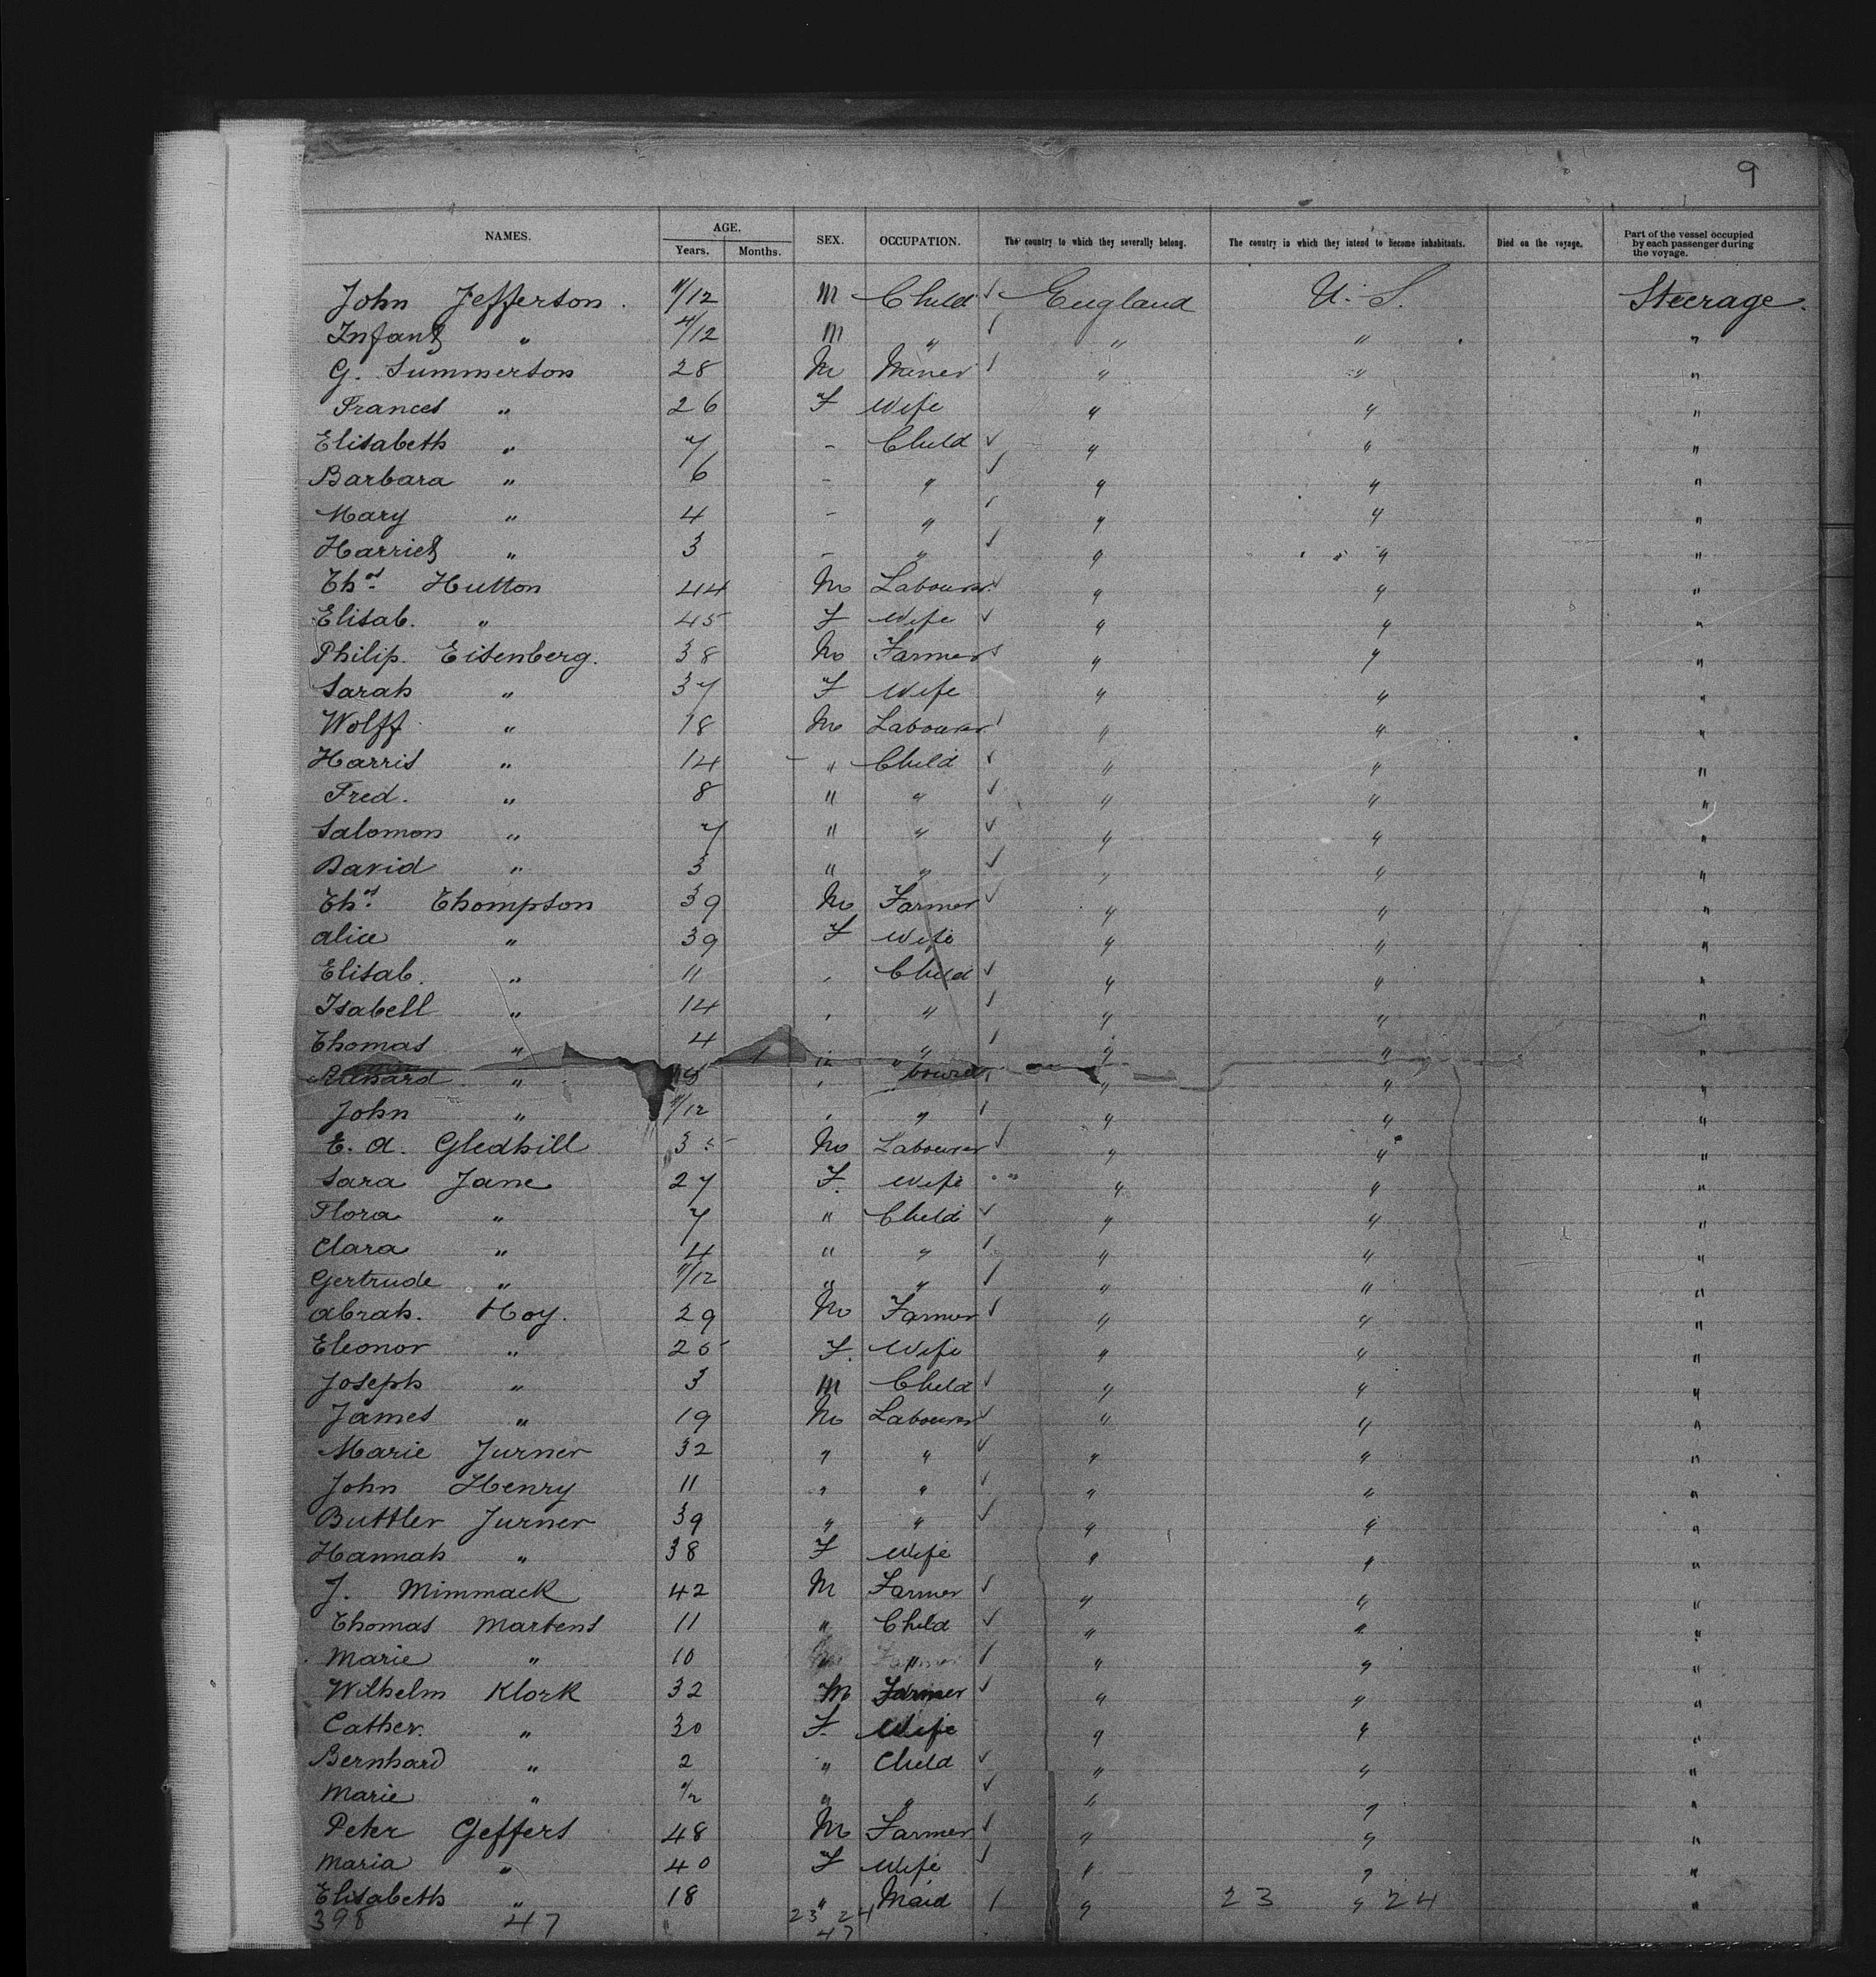 9
NAMES. AGE. SEX. OCCUPATION. The country to which they severally belong. The country in which they intend to become inhabitants. Died on the voyage. Part of the vessel occupied by each passenger during the voyage.
Years. Months.
John Jefferson. 11/12 M Child ✓ England U. S. Steerage.
Infant " 4/12 M " ✓ " " "
G. Summerson 28 M Miner ✓ " " "
Frances " 26 F Wife " " "
Elisabeth " 7 - Child ✓ " " "
Barbara " 6 - " ✓ " " "
Mary " 4 - " ✓ " " "
Harriet " 3 - " ✓ " " "
Thos Hutton 44 M Labourer ✓ " " "
Elisab. " 45 F Wife ✓ " " "
Philip. Eisenberg. 38 M Farmer ✓ " " "
Sarah " 37 F Wife " " "
Wolff " 18 M Labourer ✓ " " "
Harris " 14 - " Child ✓ " " "
Fred. " 8 " " ✓ " " "
Salomon " 7 " " ✓ " " "
David " 3 " " ✓ " " "
Thos Thompson 39 M Farmer ✓ " " "
Alice " 39 F Wife " " "
Elisab. " 11 " Child ✓ " " "
Isabell " 14 " " ✓ " " "
Thomas " 4 " " ✓ " " "
" " " " "
John " 11/12 " " ✓ " " "
E. A. Gledhill 35 M Labourer ✓ " " "
Sara Jane 27 F. Wife " " "
Flora " 7 " Child ✓ " " "
Clara " 4 " " ✓ " " "
Gertrude " 11/12 " " ✓ " " "
Abrah. Hoy. 29 M Farmer ✓ " " "
Eleonor " 25 F. Wife " " "
Joseph " 3 M Child ✓ " " "
James " 19 M Labourer ✓ " " "
Marie Turner 32 " " ✓ " " "
John Henry 11 " " ✓ " " "
Buttler Turner 39 " " ✓ " " "
Hannah " 38 F Wife " " "
J. Mimmack 42 M Farmer ✓ " " "
Thomas Martens 11 " Child ✓ " " "
Marie " 10 " " ✓ " " "
Wilhelm Klork 32 M Farmer ✓ " " "
Cather. " 30 F. Wife " " "
Bernhard " 2 " Child ✓ " " "
Marie " " " ✓ " " "
Peter Geffers 48 M Farmer ✓ " " "
Maria " 40 F Wife ✓ " " "
Elisabeth " 18 " Maid ✓ " 23 " 24 "
398 47 " 23 24
47